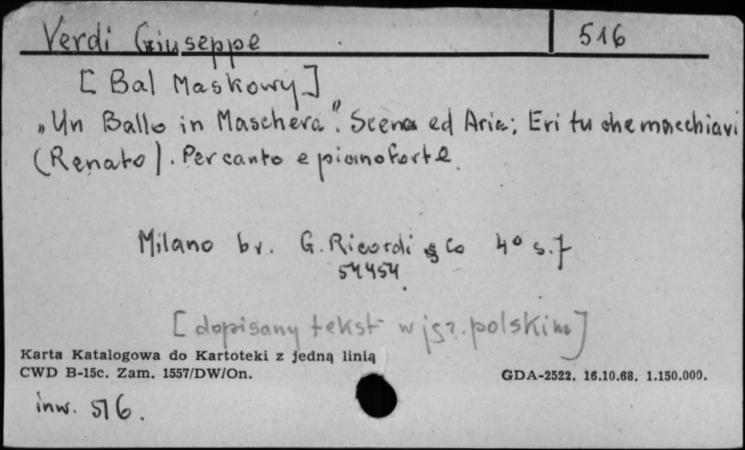 Verdi Giuseppe 516
[Bal Maskowy]
„Un Ballo in Maschera". Scena ed Aria; Eri tu che macchiavi
(Renato). Per canto e pianoforte.
Milano br. G. Ricordi & Co 4° s. 7
54454.
[dopisany tekst w jęz. polskim]
Karta Katalogowa do Kartoteki z jedną linią
CWD B-15c. Zam. 1557/DW/On. GDA-2522. 16.10.68. 1.150.000.
inw. 516.